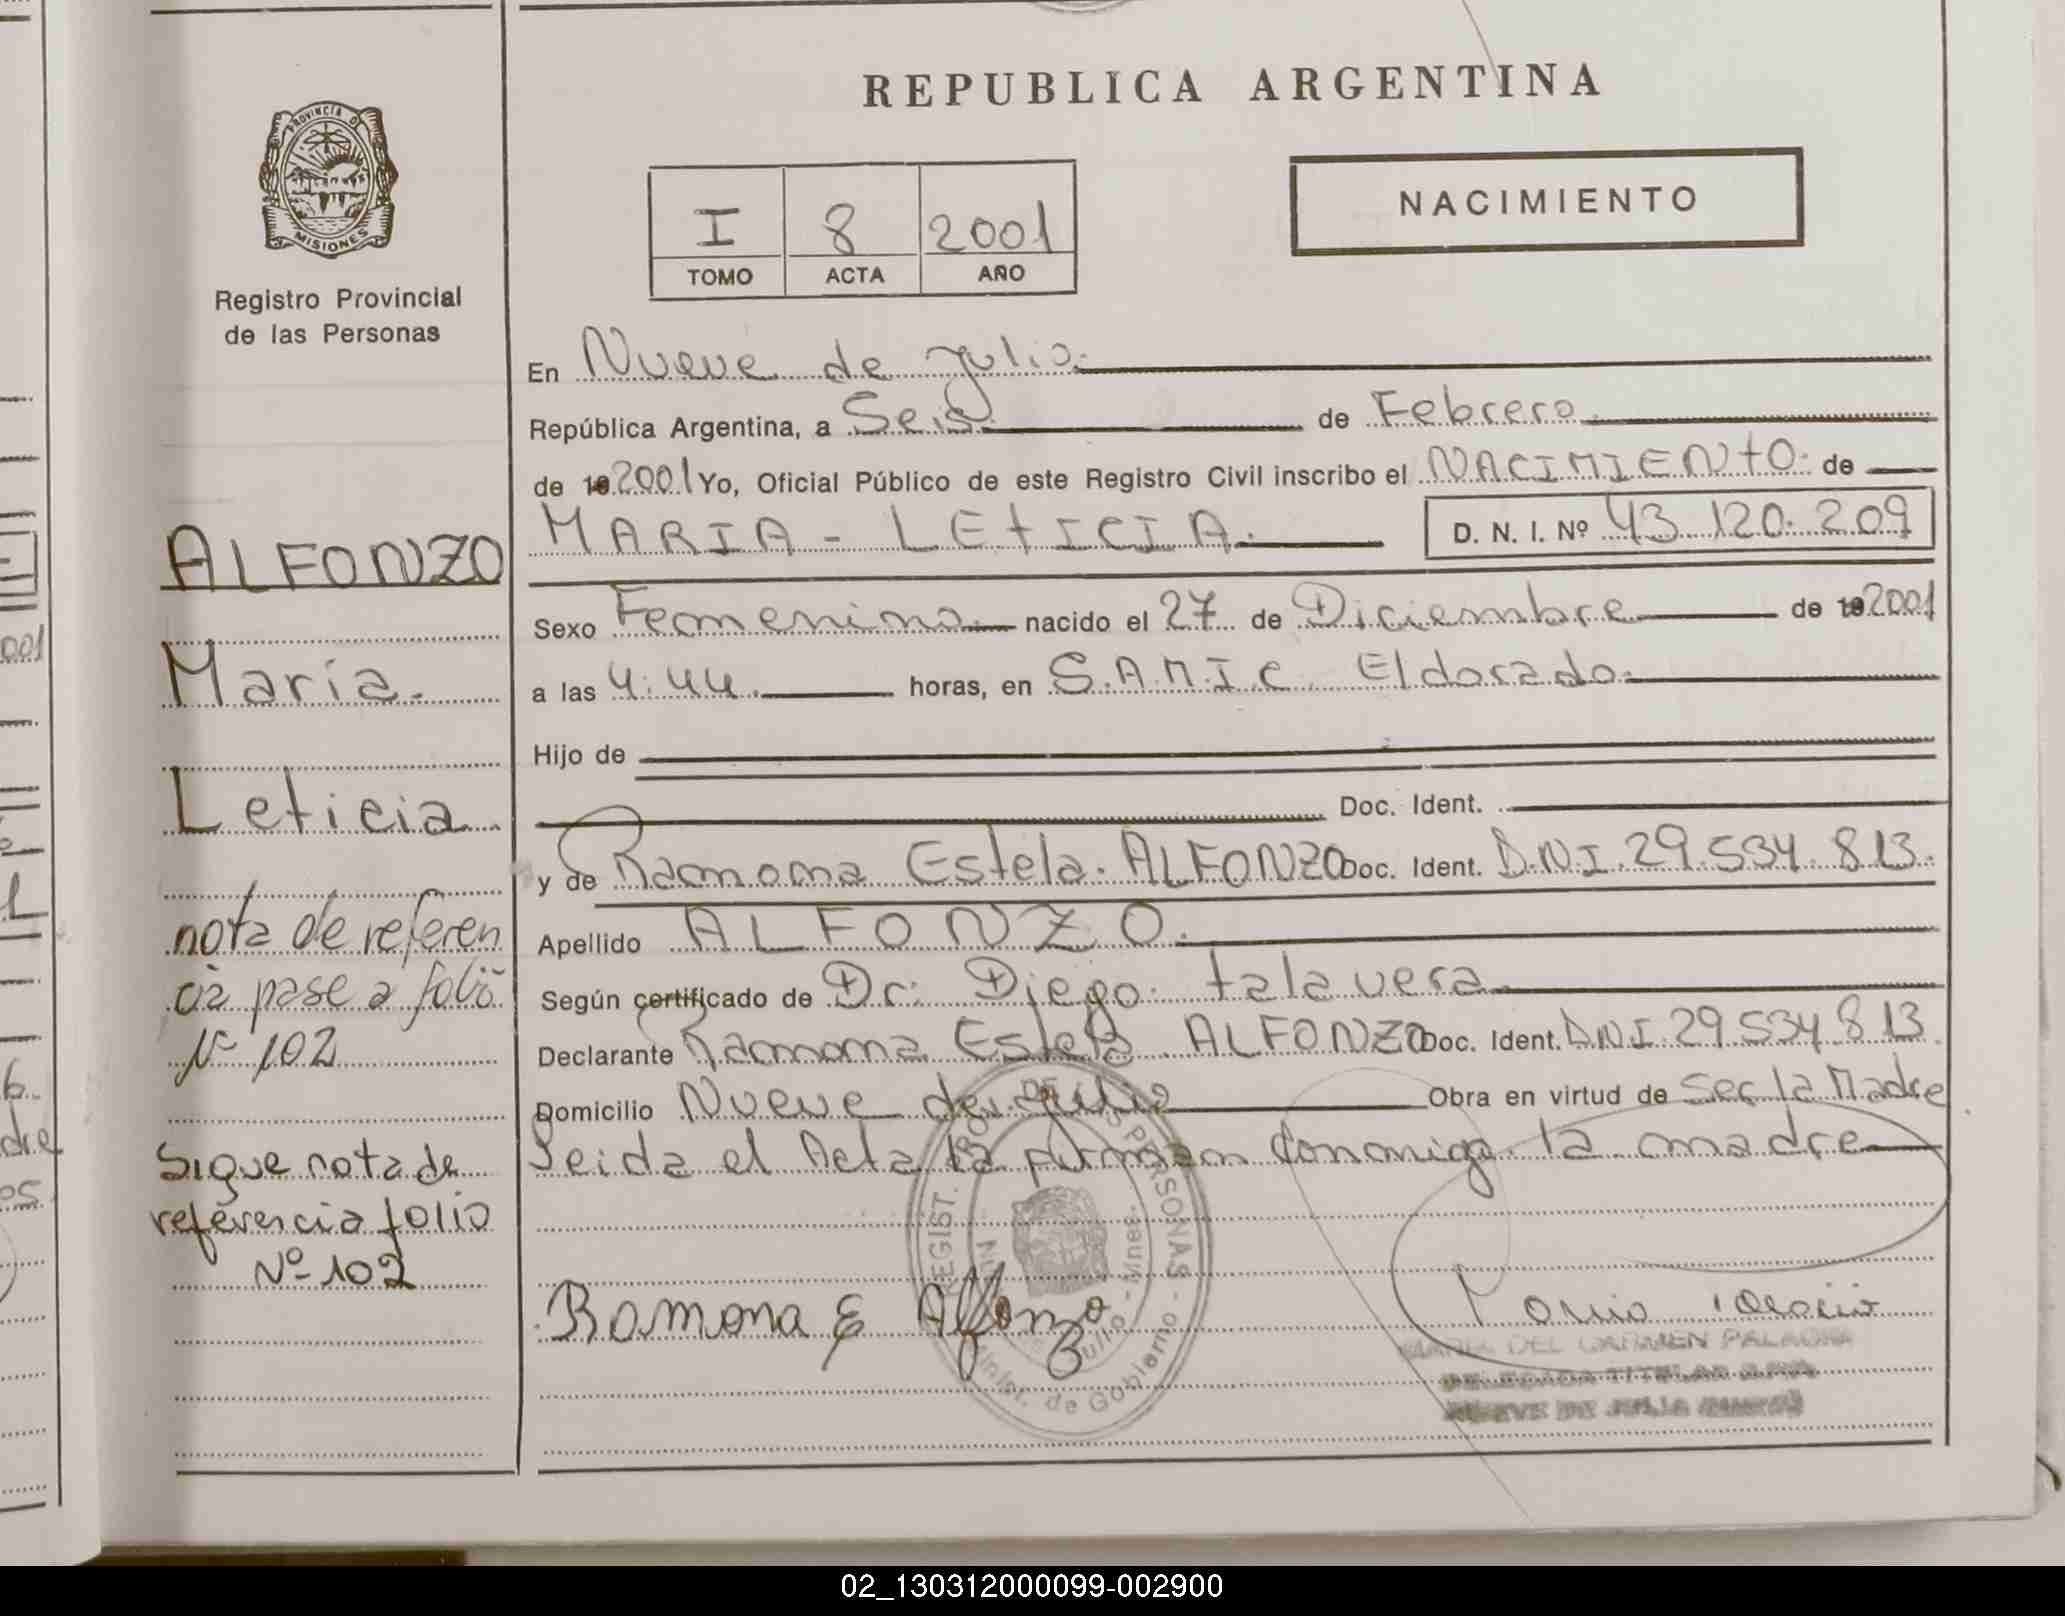 REPUBLICA ARGENTINA
NACIMIENTO
I 8 2001
TOMO ACTA AÑO
PROVINCIA D
MISIONES
Registro Provincial
de las Personas
ALFONZO
María.
Leticia
nota de referen
cia pase a folio
Nº 102
Sigue nota de
referencia folio
Nº 102
En Nueve de Julio.
República Argentina, a Seis de Febrero
de 19 2001 Yo, Oficial Público de este Registro Civil inscribo el NACIMIENTO. de
MARIA - LETICIA. D. N. I. Nº 43.120.209
Sexo Femenino nacido el 27 de Diciembre de 19 2001
a las 4:44. horas, en S.A.M.I.C. Eldorado.
Hijo de
Doc. Ident.
y de Ramona Estela. ALFONZO Doc. Ident. D.N.I. 29.534.813.
Apellido ALFONZO.
Según certificado de Dr. Diego talavera
Declarante Ramona Estela ALFONZO Doc. Ident. DNI. 29.534.813
Domicilio Nueve de Julio Obra en virtud de Ser la Madre
Leida el Acta la firman Conmigo la madre
REGIST. PERSONAS
Julio - Mnes.
Minist. de Gobierno
Ramona E Alfonzo
MARIA DEL CARMEN
DELEGADA TITULAR
NUEVE DE JULIO
02_130312000099-002900